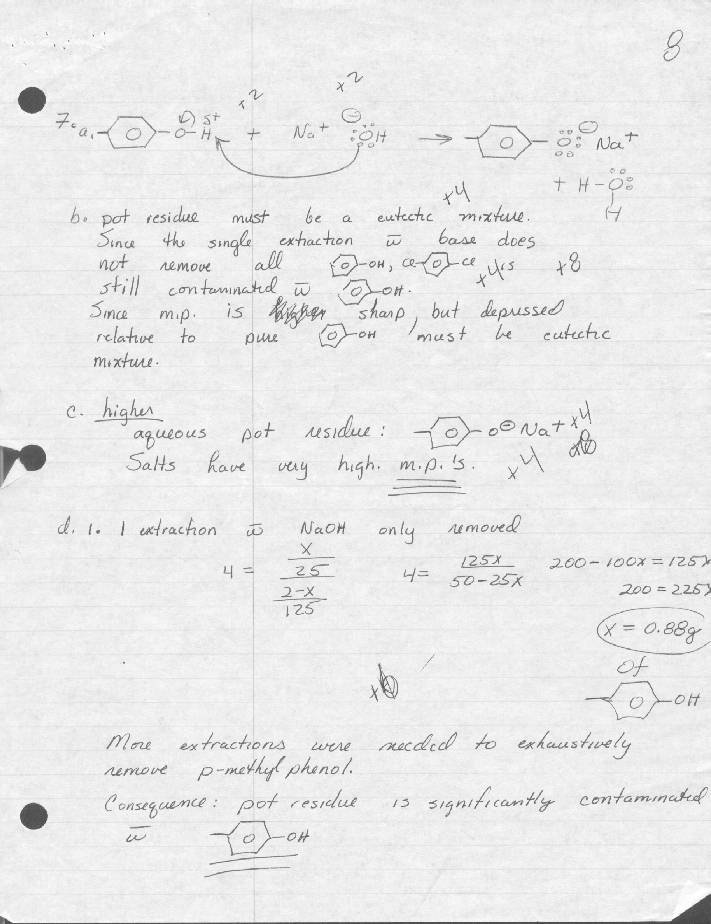 8
x2 x2
7. a. O-H δ+ + Na+ ⊖OH → O⊖ Na+
+ H-O
H
b. pot residue must be a eutectic mixture. x4
Since the single extraction w̄ base does
not remove all OH, Cl Cl is x4 x8
still contaminated w̄ OH.
Since m.p. is sharp, but depressed
relative to pure OH, must be eutectic
mixture.
c. higher
aqueous pot residue: O⊖ Na+ x4
Salts have very high. m.p.'s. x4
d. 1. 1 extraction w̄ NaOH only removed
4 = x/25 / 2-x/125 4 = 125x / 50-25x 200-100x = 125x
200 = 225x
x = 0.88g
of
OH
More extractions were needed to exhaustively
remove p-methyl phenol.
Consequence: pot residue is significantly contaminated
w̄ OH